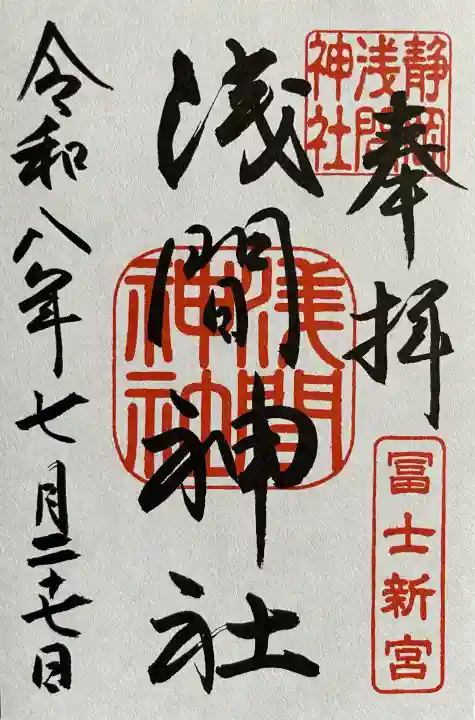 静岡
浅間
神社
奉拝
冨士新宮
浅間神社
浅間
神社
令和八年七月二十七日